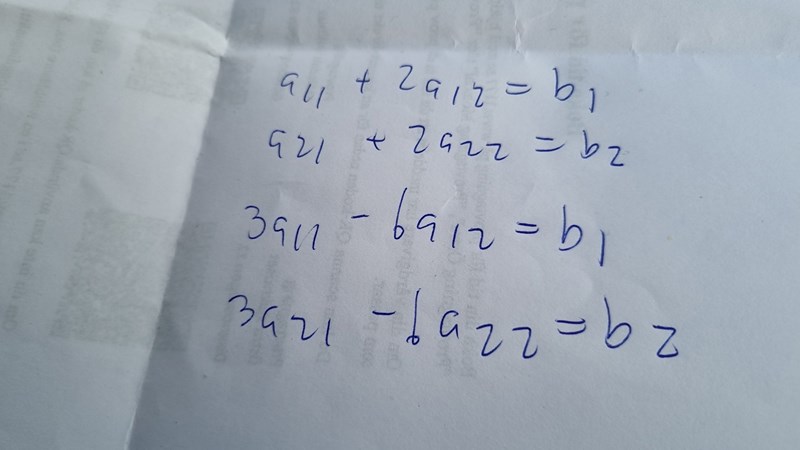 a11 + 2a12 = b1
a21 + 2a22 = b2
3a11 - 6a12 = b1
3a21 - 6a22 = b2